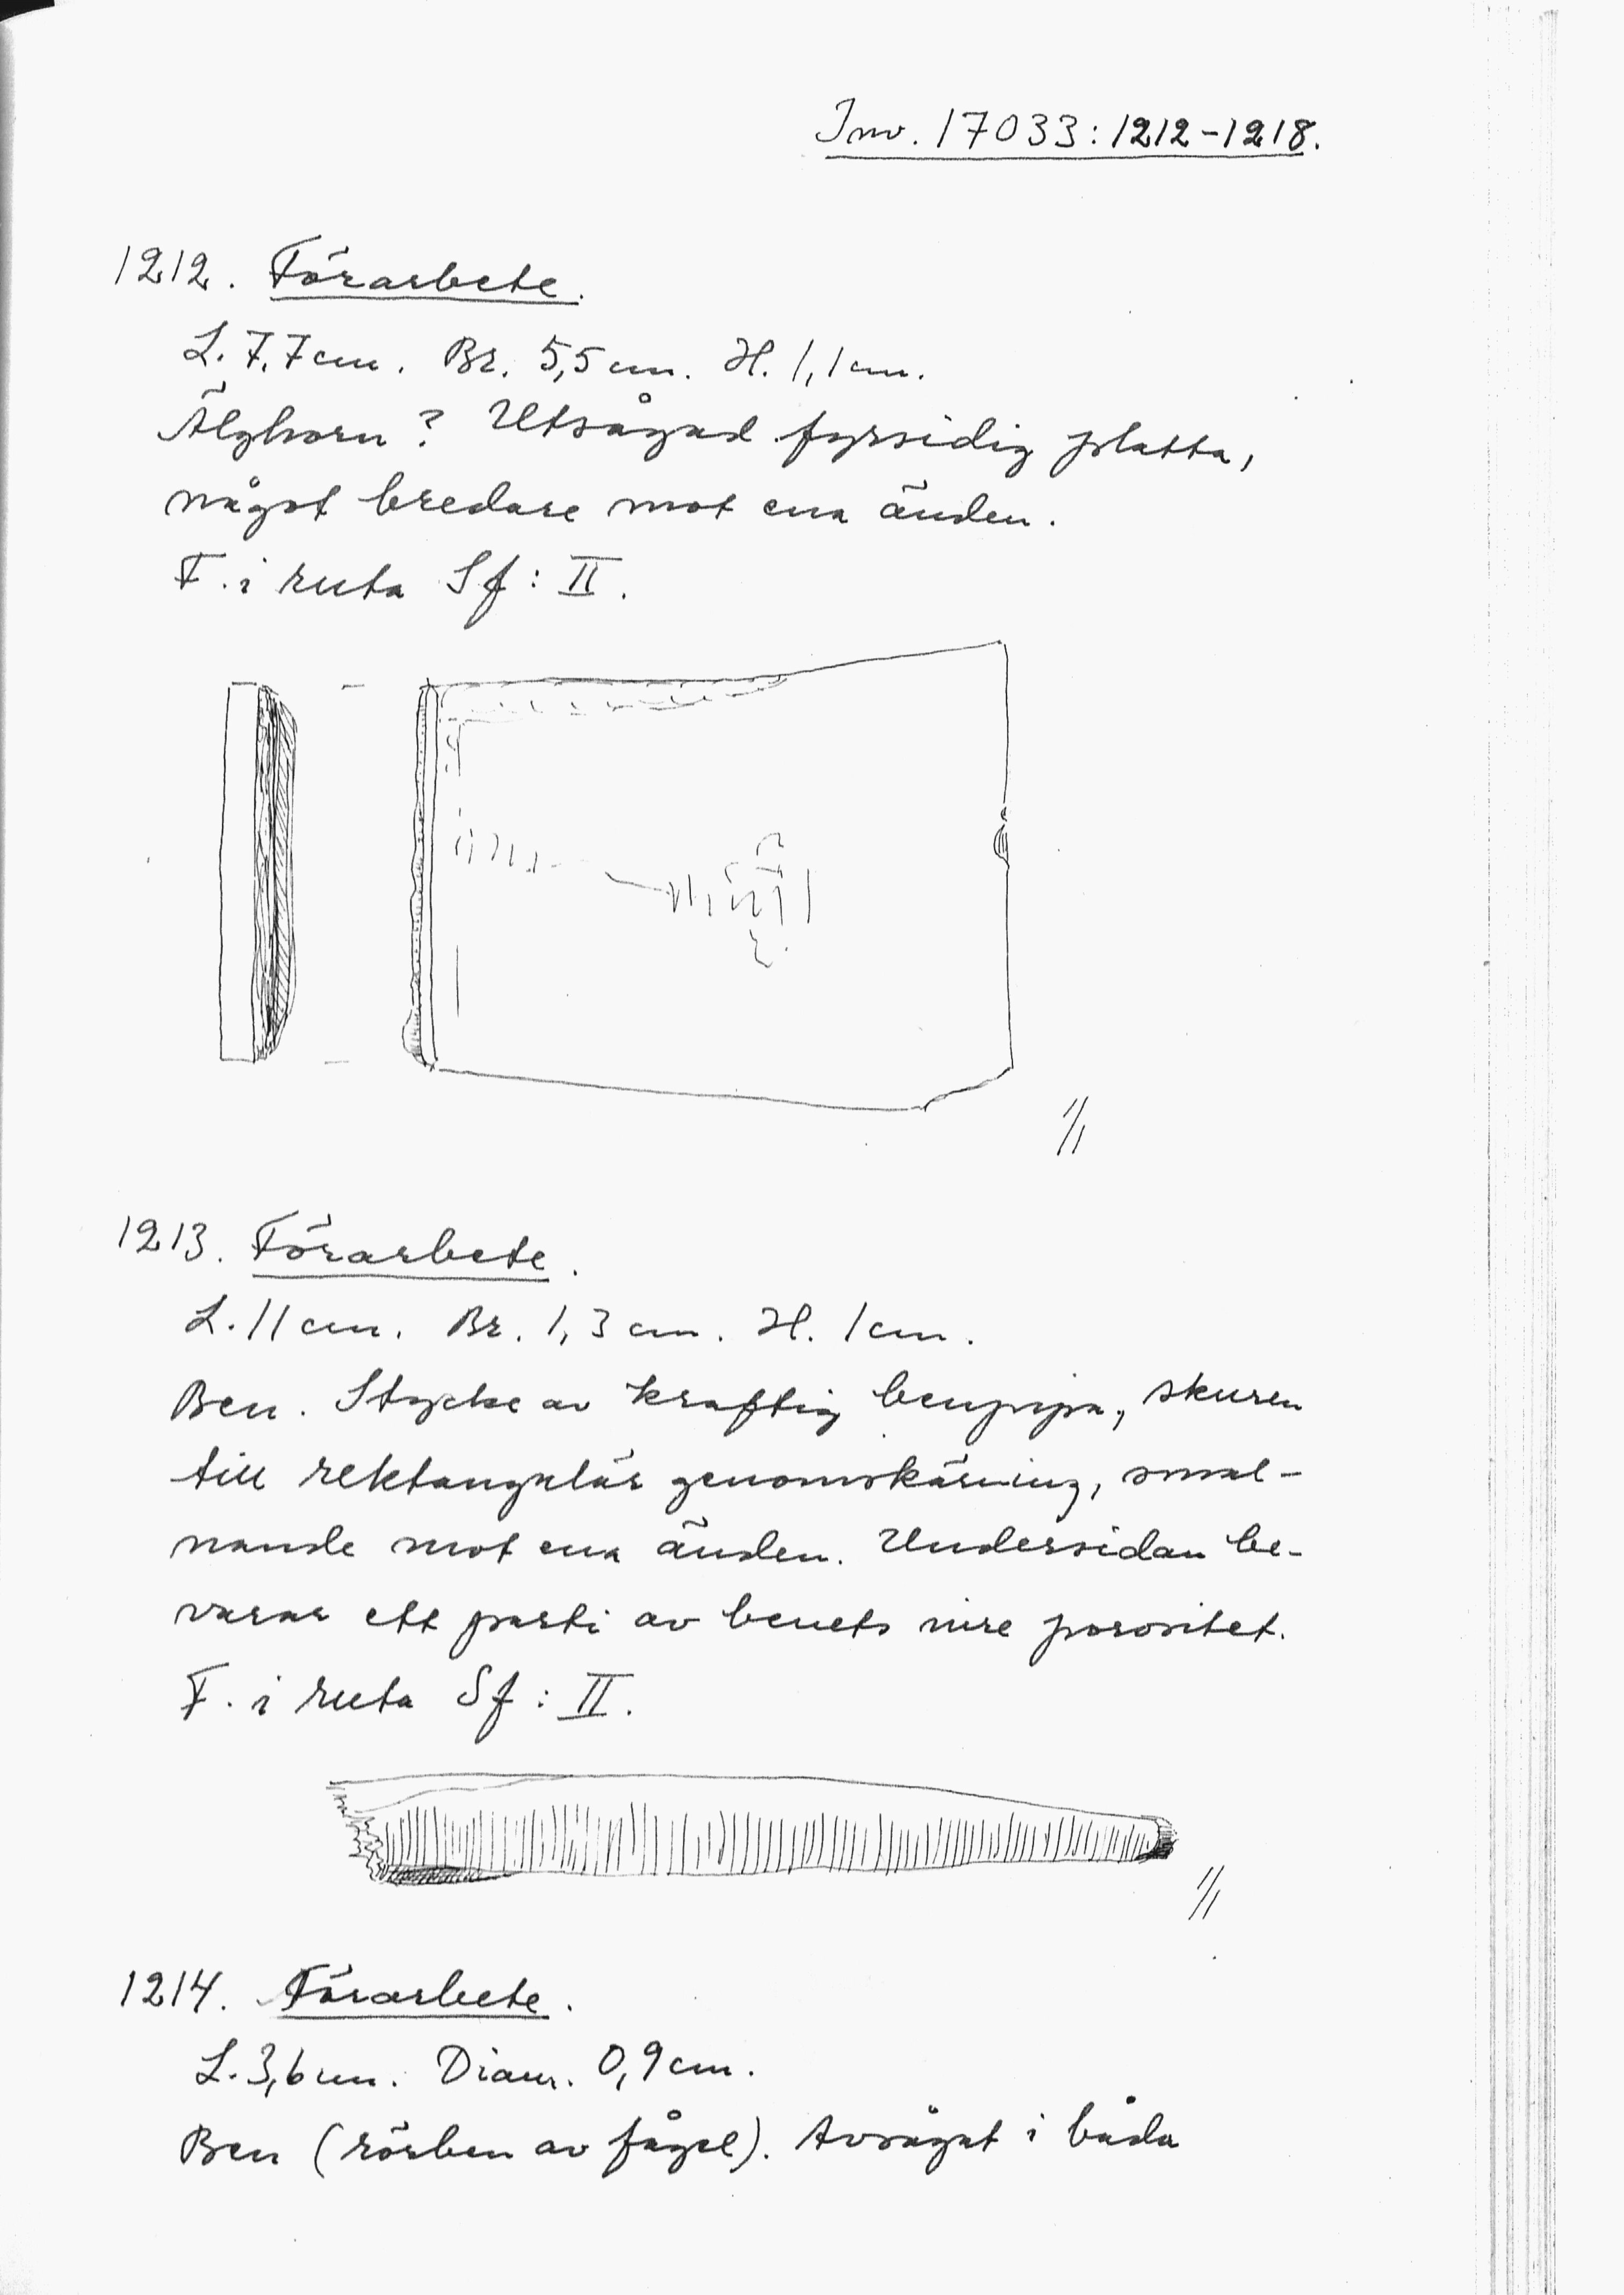 Inv. 17033:1212-1218.
1212. Förarbete.
L. 7,7 cm. Br. 5,5 cm. H. 1,1 cm.
Älghorn? Utsågad fyrsidig platta,
något bredare mot ena änden.
F. i ruta Sf: II.
1/1
1213. Förarbete.
L. 11 cm. Br. 1,3 cm. H. 1 cm.
Ben. Stycke av kraftig benpipa, skuren
till rektangulär genomskärning, smal-
nande mot ena änden. Undersidan be-
varar ett parti av benets inre porositet.
F. i ruta Sf: II.
1/1
1214. Förarbete.
L. 3,6 cm. Diam. 0,9 cm.
Ben (rörben av fågel). Avsågat i båda